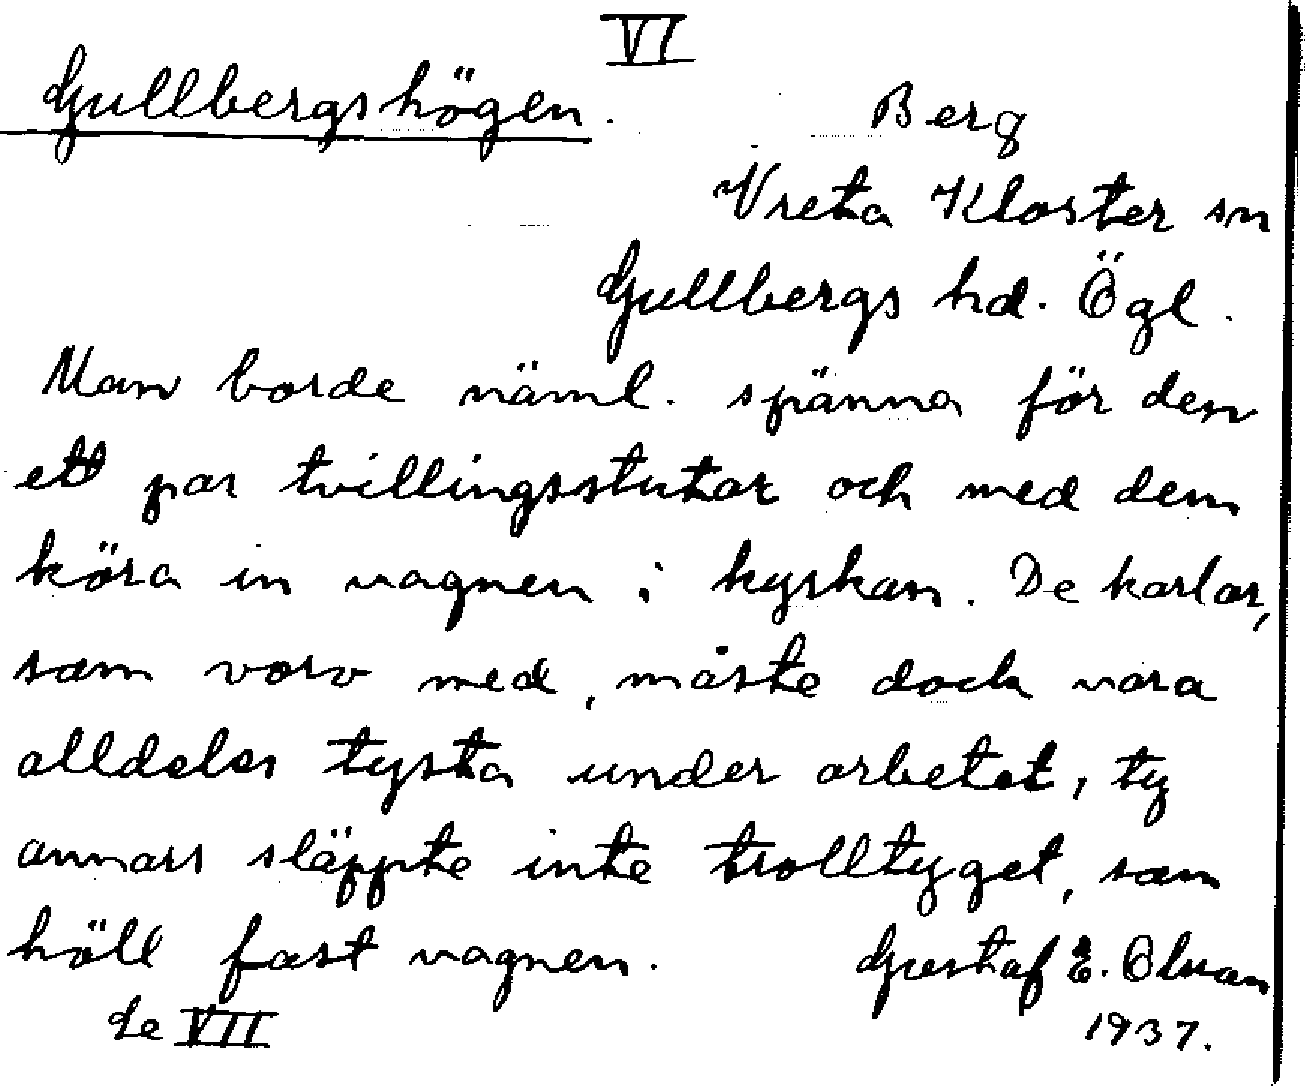 VI
Gullbergshögen.
Berg
Vreta Kloster sn
Gullbergs hd. Ögl.
Man borde näml. spänna för den
ett par tvillingsstutar och med dem
köra in vagnen i kyrkan. De karlar,
som voro med, måste dock vara
alldeles tysta under arbetet, ty
annars släppte inte trolltyget, som
höll fast vagnen.
Gustaf E. Olsson
1937.
Se VII